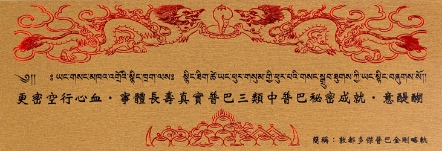 ༄༅། །ཡང་གསང་མཁའ་འགྲོའི་སྙིང་ཁྲག་ལས༔ སྙིང་ཏིག་ཚེ་ཡང་ཕུར་གསུམ་གྱི་ཕུར་པའི་གསང་སྒྲུབ་ཐུགས་ཀྱི་ཡང་སྙིང་བཞུགས་སོ།།
更密空行心血‧事體長壽真實普巴三類中普巴秘密成就‧意醍醐
簡稱：敦都多傑普巴金剛略軌